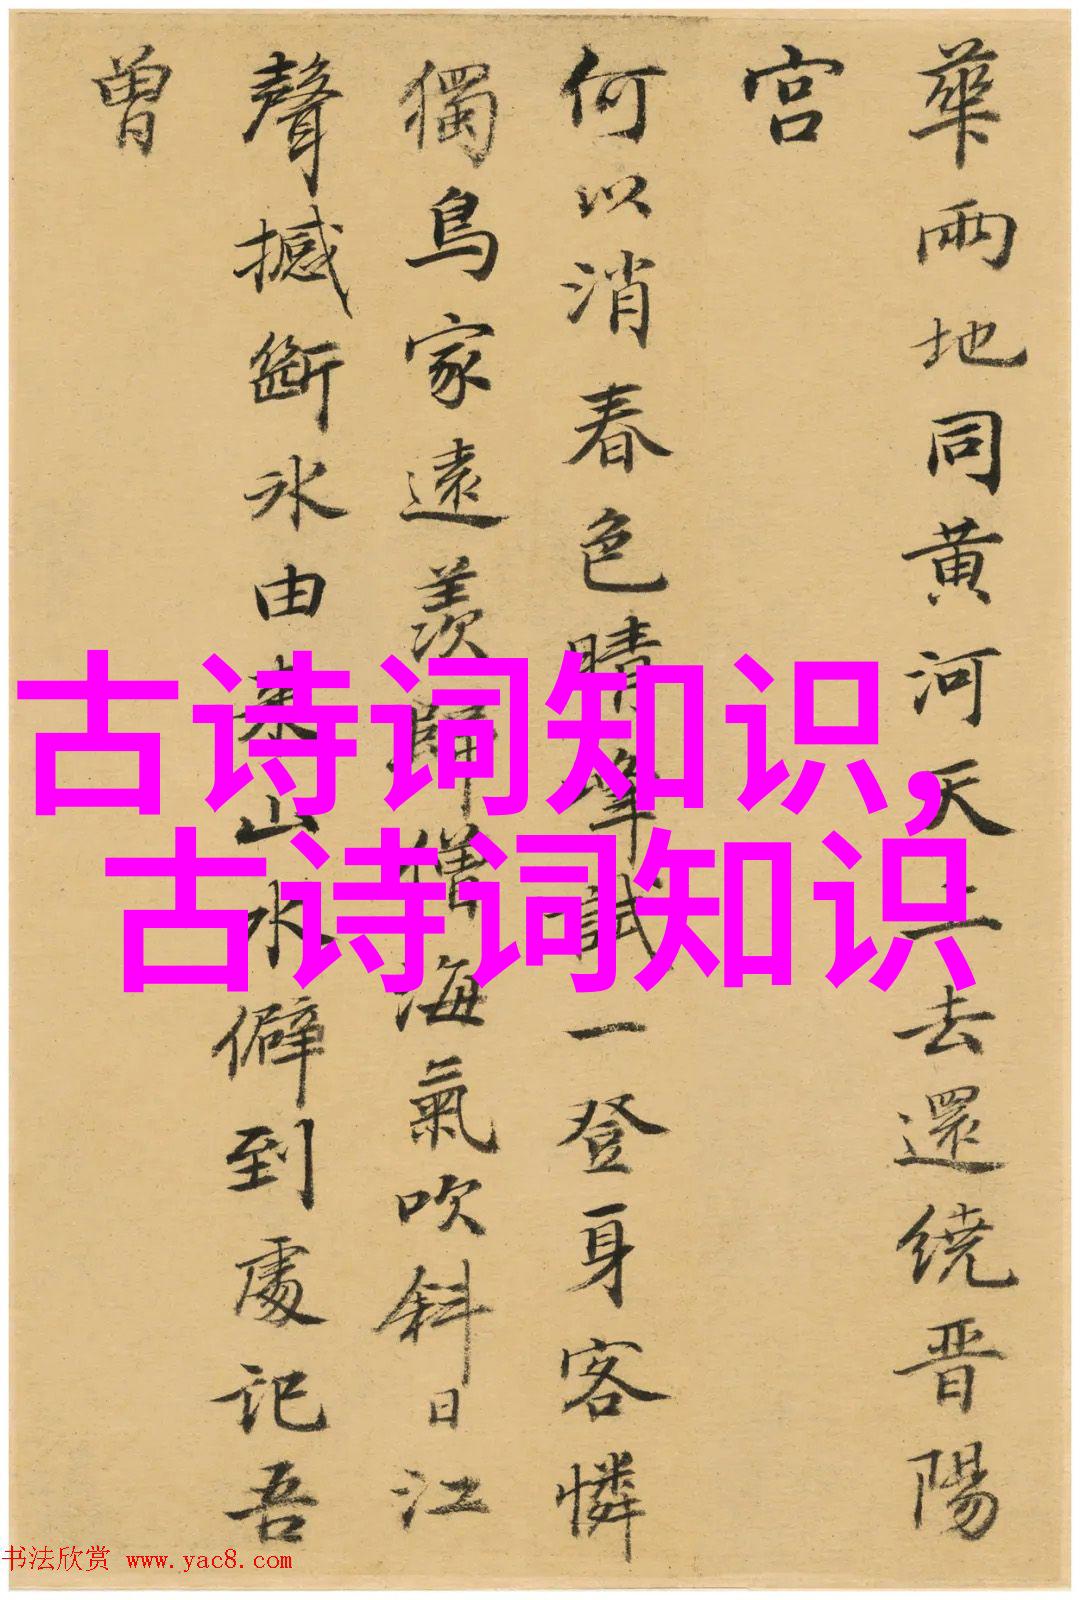 華兩地同黄河天上去還繞晋陽
宫
何以消春色晴峰試一登身客憐
獨鳥家遠羨歸僧海氣吹斜日江
聲撼斷冰由来山水僻到處記吾
曾
古诗词知识，
古诗词知识
书法欣赏 www.yac8.com